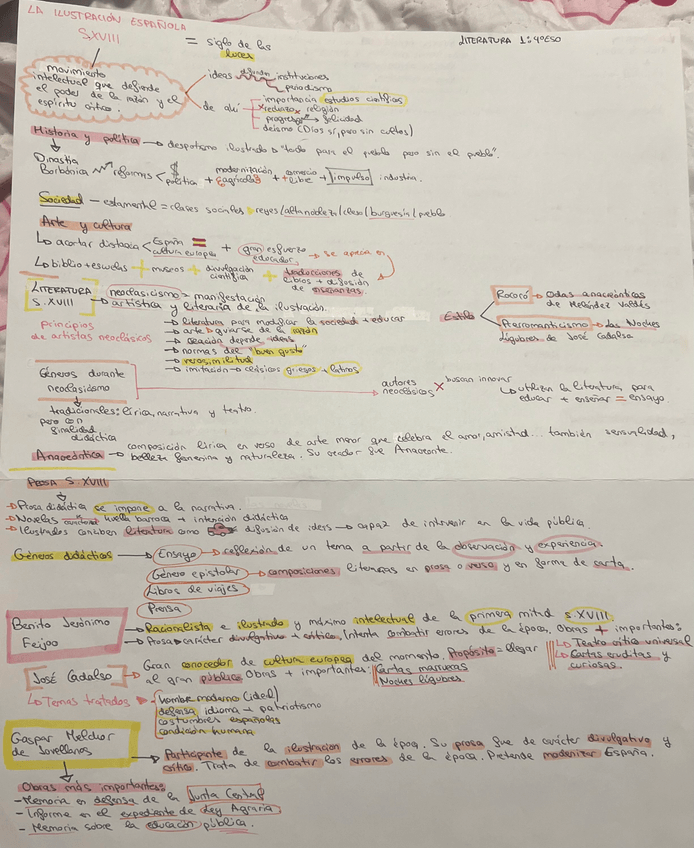 LA ILUSTRACIÓN ESPAÑOLA
S.XVIII = siglo de las luces
LITERATURA 1: 4ºESO
movimiento
intelectual que defiende
el poder de la razón y el
espíritu crítico.
ideas difundir instituciones
periodismo
de ahí
importancia estudios científicos
rechazo x religión
progreso → felicidad
deísmo (Dios sí, pero sin cultos)
Historia y política → despotismo ilustrado → "todo para el pueblo pero sin el pueblo".
Dinastía
Borbónica reformas < $ política + agrícolas modernización + comercio libre + impulso industria.
Sociedad - estamental = clases sociales reyes/alta nobleza/clero/burguesía/pueblo
Arte y cultura
↳ acortar distancia < España = cultura europea + gran esfuerzo educador. → se apoca en
↳ biblio + escuelas + museos + divulgación científica + traducciones de libros + difusión de enseñanzas.
LITERATURA
S. XVIII
neoclasicismo > manifestación
artística y literaria de la ilustración.
principios
de artistas neoclásicos
→ literatura para modificar la sociedad + educar
→ arte → guiarse de la razón
→ creación depende ideals
→ normas del "buen gusto"
→ verosimilitud
→ imitación → clásicos griegos + latinos
Estilo
Rococó → Odas anacreónticas
de Meléndez Valdés
Prerromanticismo → Las Noches
Lúgubres de José Cadalso
Géneros durante
neoclasicismo
autores
neoclásicos x buscan innovar
↳ utilizan la literatura para
educar + enseñar = ensayo
tradicionales: lírica, narrativa y teatro.
pero con
finalidad
didáctica
Anacreóntica → composición lírica en verso de arte menor que celebra el amor, amistad... también sensualidad,
belleza femenina y naturaleza. Su creador fue Anacreonte.
PROSA S. XVIII
→ Prosa didáctica se impone a la narrativa.
→ Novelas huella barroca + intención didáctica
→ Ilustrados conciben literatura como difusión de ideas → capaz de intervenir en la vida pública.
Géneros didácticos → Ensayo → reflexión de un tema a partir de la observación y experiencia.
Género epistolar → composiciones literarias en prosa o verso y en forma de carta.
Libros de viajes
Prensa
Benito Jerónimo
Feijoo
→ Racionalista e ilustrado y máximo intelectual de la primera mitad s.XVIII.
→ Prosa → carácter divulgativo + crítico. Intenta combatir errores de la época. Obras + importantes:
↳ Teatro crítico universal
↳ Cartas eruditas y
curiosas.
José Cadalso → Gran conocedor de cultura europea del momento. Propósito = llegar
al gran público. Obras + importantes: Cartas marruecas
Noches lúgubres.
↳ Temas tratados
hombre moderno (ideal)
defensa idioma + patriotismo
costumbres españolas
condición humana
Gaspar Melchor
de Jovellanos
→ Participante de la ilustración de la época. Su prosa fue de carácter divulgativo y
crítico. Trata de combatir los errores de la época. Pretende modernizar España.
Obras más importantes:
- Memoria en defensa de la Junta Central
- Informe en el expediente de Ley Agraria
- Memoria sobre la educación pública.